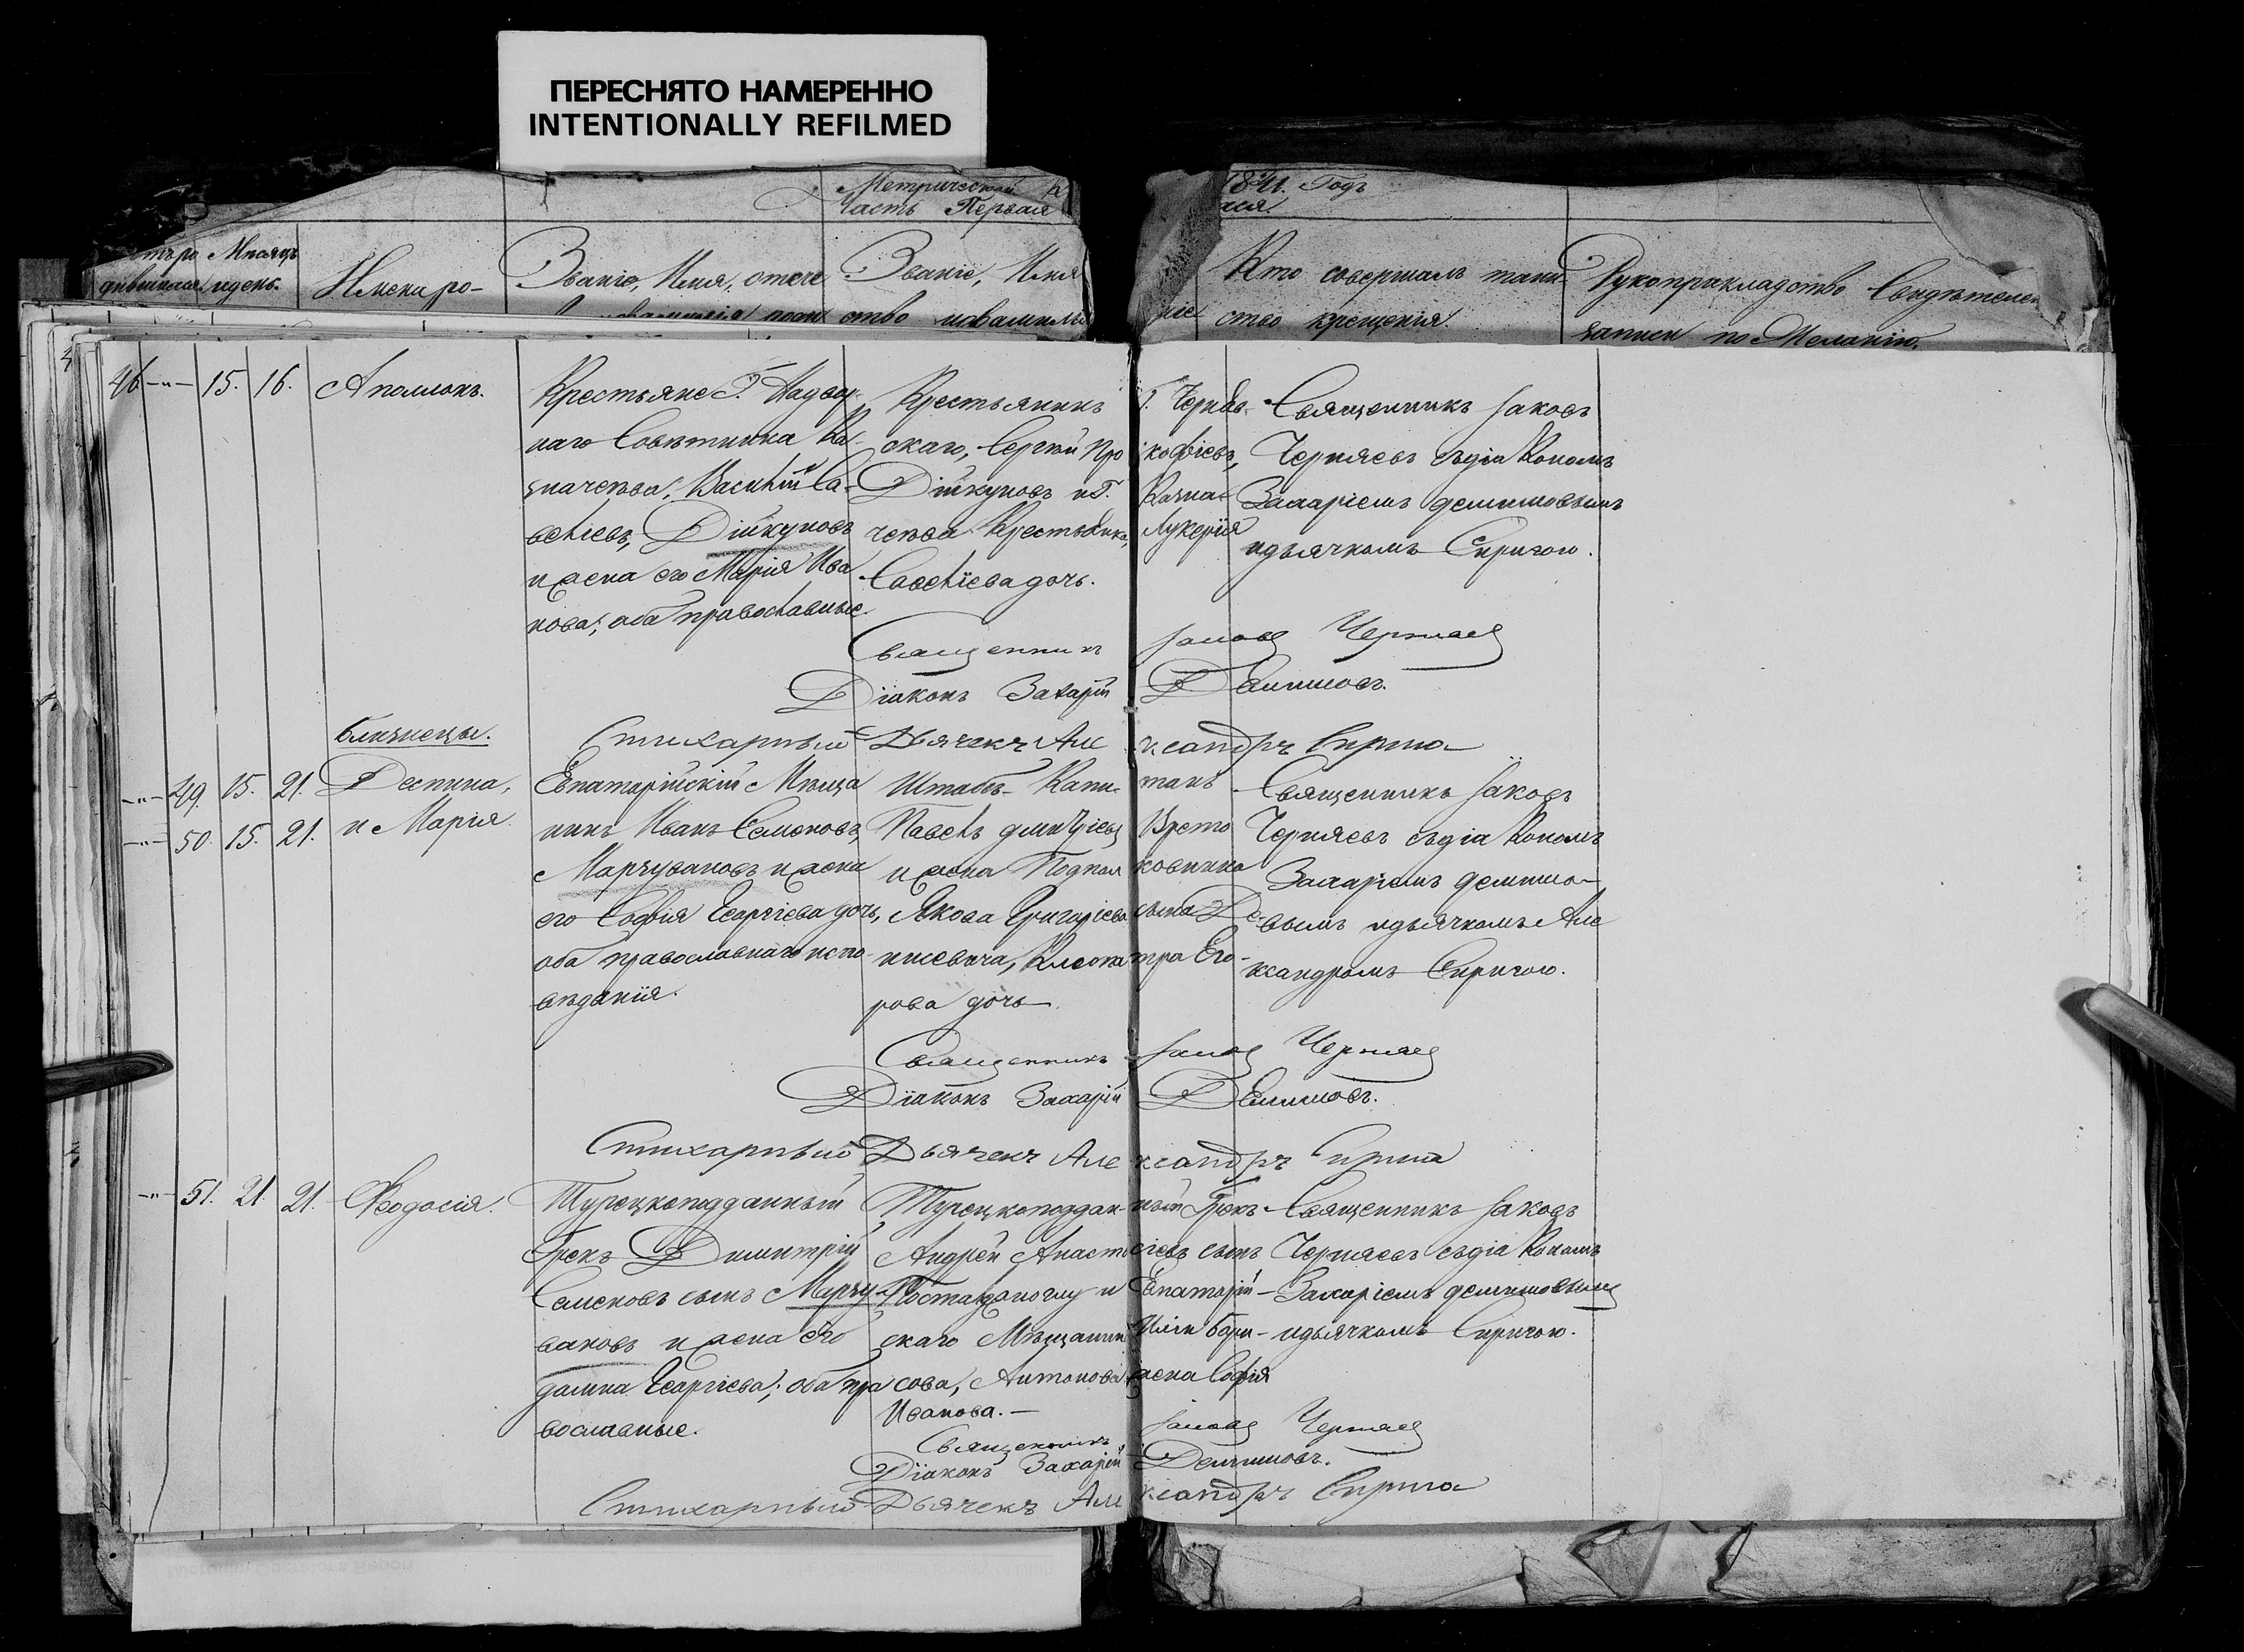 ПЕРЕСНЯТО НАМЕРЕННО
INTENTIONALLY REFILMED
Метрической
Часть Первая
1841. Годъ
Мѣсяцъ
и день.
Имена ро-
Званіе, Имя, отече
Званіе, Имя
ство и фамилія
Кто совершалъ таин-
ство крещенія.
Рукоприкладство Свидѣтелей
записи по Желанію.
46 -"- 15. 16. Аполлонъ.
Крестьяне Г. Надвор-
наго Совѣтника Ка-
значеева, Василій Са-
велiевъ, Дійкуновъ
и жена его Марія Ива
нова; оба православные.
Крестьянинъ Г. Черняв-
скаго, Сергѣй Прокофіевъ,
Дійкуновъ и Г. Казна-
чеева Крестьянка, Лукерія
Савеліева дочь.
Священникъ Іаковъ
Черняевъ съ діакономъ
Захаріемъ Демишовымъ
и дьячкомъ Спригою.
Священникъ Іаковъ Черняев
Діаконъ Захарій Демишовъ.
Стихарный Дьячекъ Александръ Сприга
близнецы.
-"- 49. 15. 21. Деспина,
-"- 50. 15. 21. и Марія.
Евпаторійскій Мѣща
нинъ Иванъ Семеновъ,
Марчувановъ и жена
его Софія Георгіева дочь,
оба православнаго испо-
вѣданія.
Штабсъ-Капитанъ
Павелъ Дмитріевъ Врето
и жена Подполковника
Якова Григоріева сына Де-
нисевича, Клеопатра Его-
рова дочь.
Священникъ Іаковъ
Черняевъ съ діакономъ
Захаріемъ Демишо-
вымъ и дьячкомъ Але
ксандромъ Спригою.
Священникъ Іаковъ Черняев
Діаконъ Захарій Демишовъ.
Стихарный Дьячекъ Александръ Сприга
-"- 51. 21. 21. Ѳеодосія.
Турецкоподданный
Грекъ Димитрій
Семеновъ сынъ Марчу-
вановъ и жена его
Домна Георгіева; оба пра
вославные.
Турецкоподданный Грекъ
Андрей Анастасіевъ сынъ
Костанданоглу и Евпаторій-
скаго Мѣщанина
сова, Антонова жена Софія
Иванова.-
Священникъ Іаковъ
Черняевъ съ діакономъ
Захаріемъ Демишовымъ
и дьячкомъ Спригою.
Священникъ Іаковъ Черняев
Діаконъ Захарій Демишовъ.
Стихарный Дьячекъ Александръ Сприга